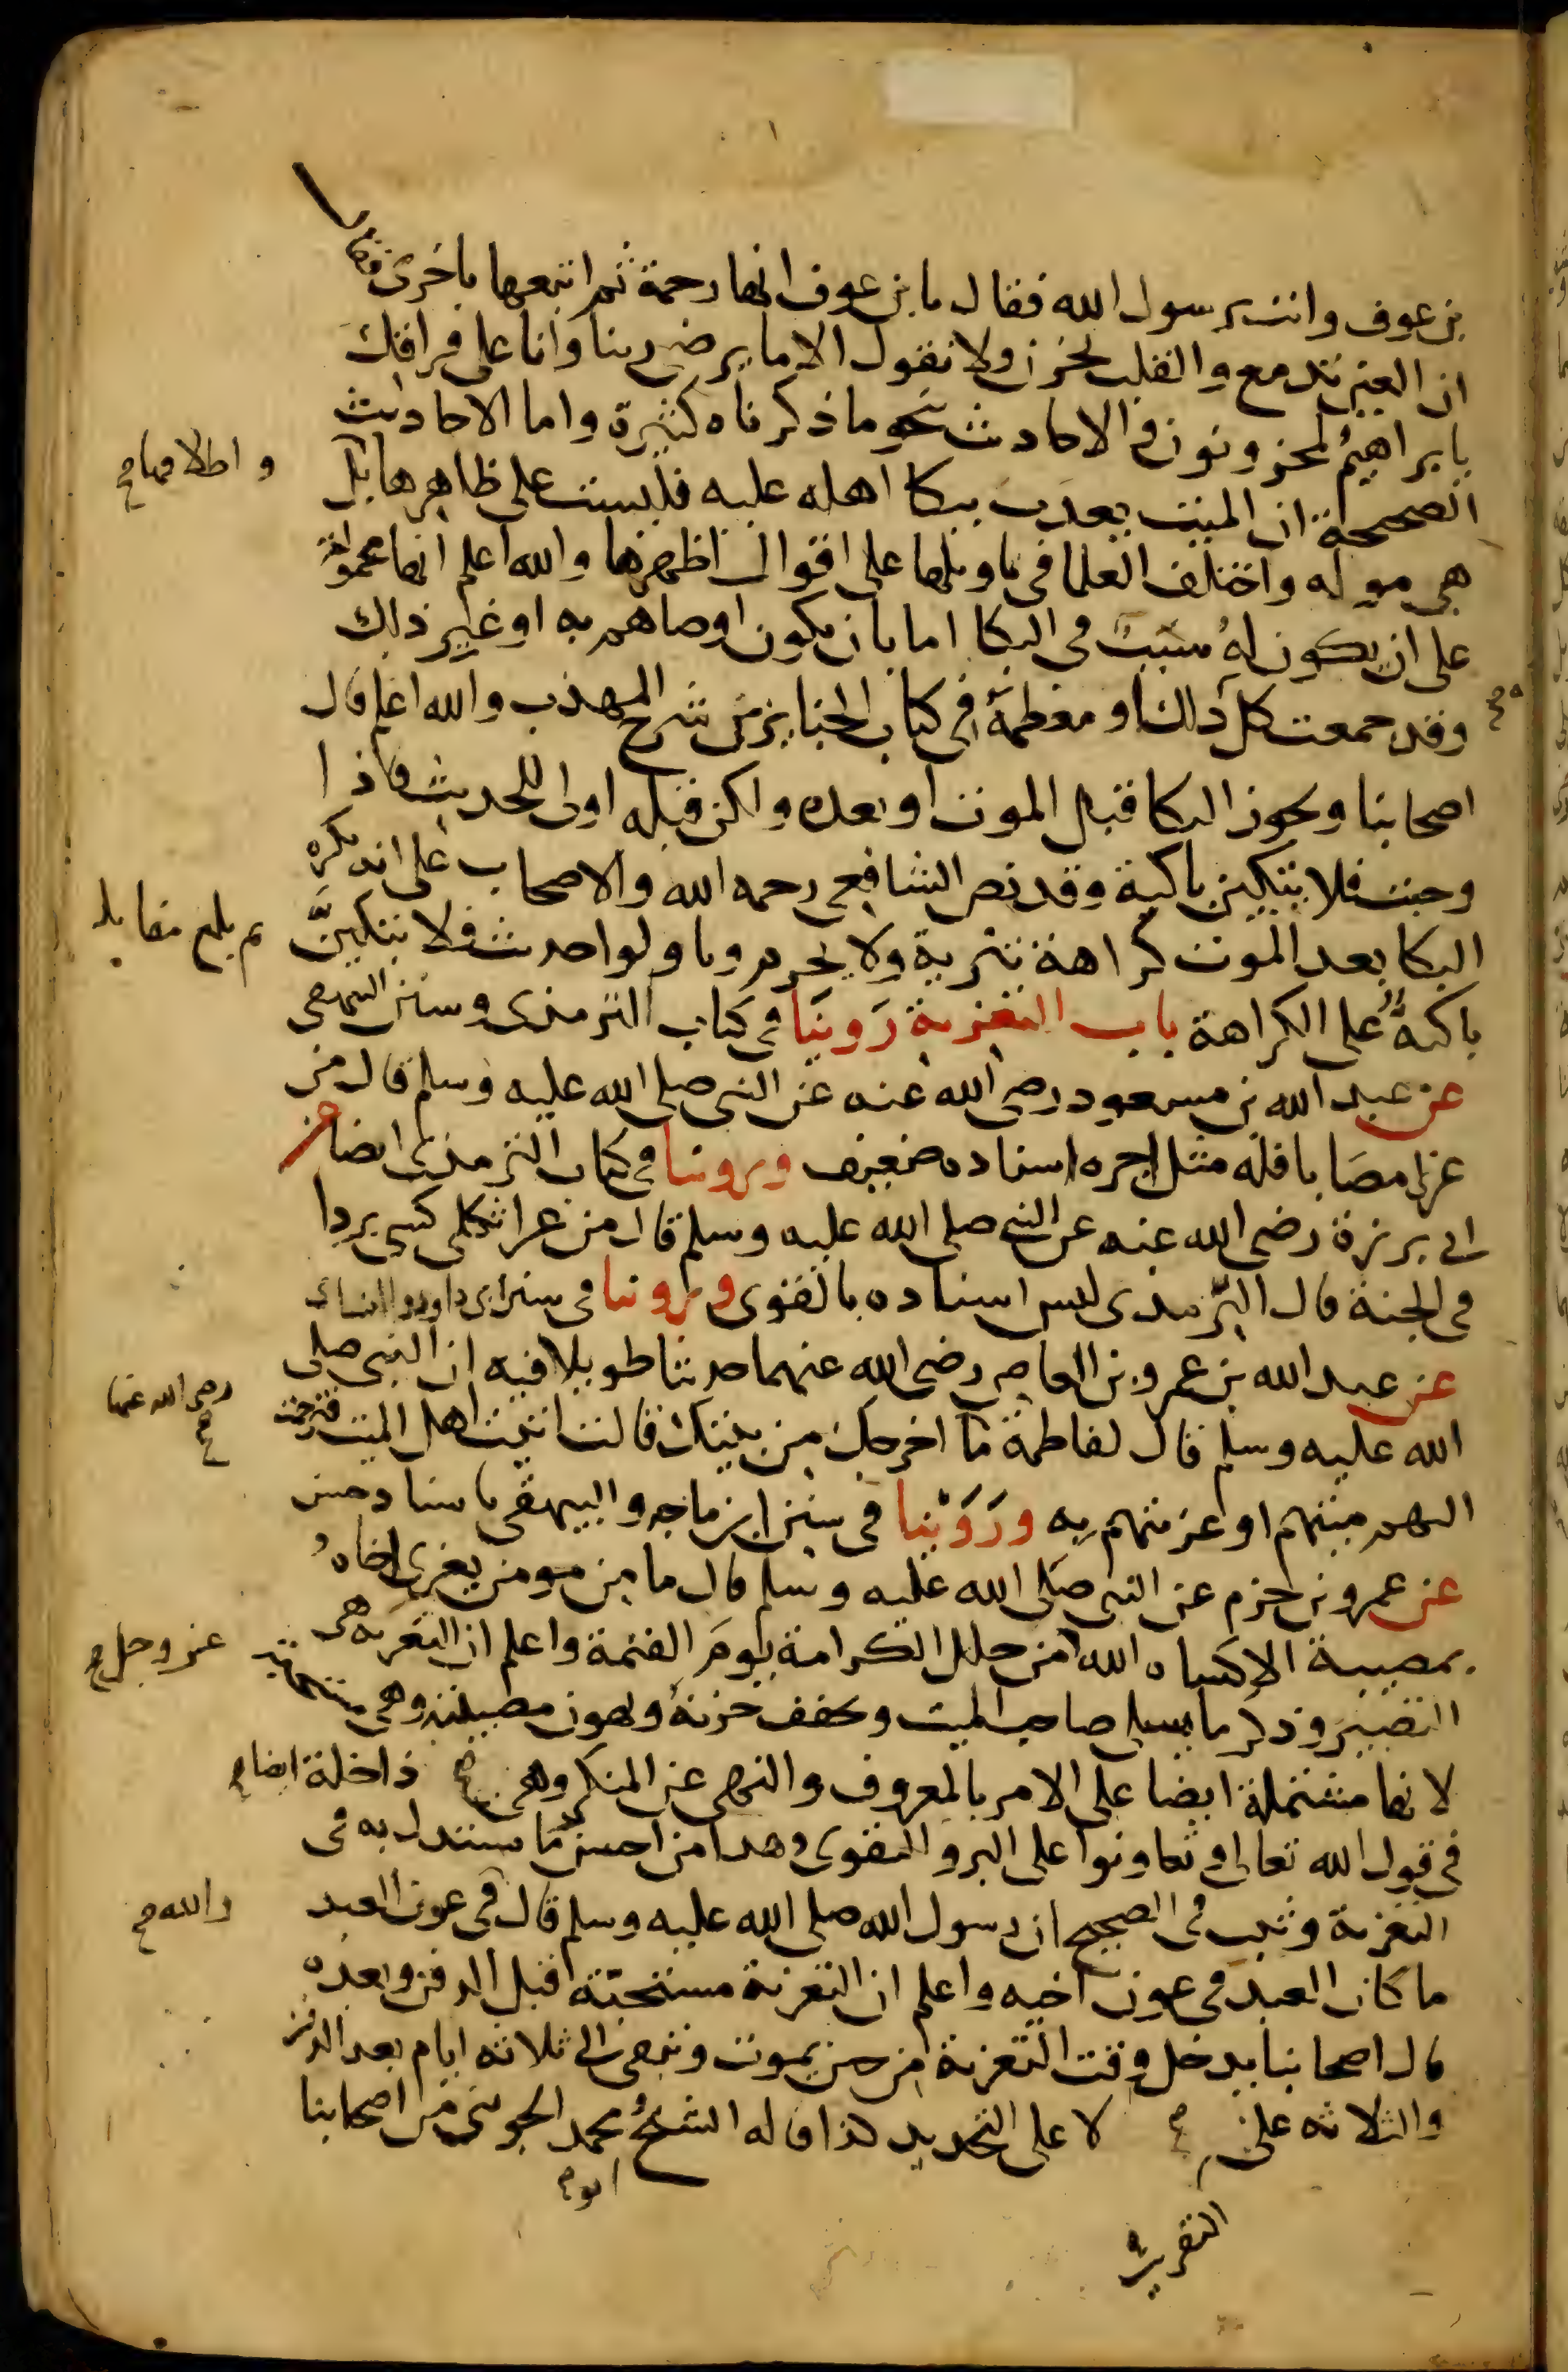 بن عوف وانت يرسول الله فقال يا بن عوف انها رحمة ثم اتبعها باخرى فقال
ان العين تدمع والقلب يحزن ولا نقول الا ما يرضي ربنا وانا على فراقك
يا براهيم لمحزونون في الاحاديث نحو ما ذكرناه كثيرة واما الاحاديث
الصحيحة ان الميت يعذب ببكا اهله عليه فليست على ظاهرها بل
و اطلاقها صح
هي موله واختلف العلما في تاويلها على اقوال اظهرها والله اعلم انها محمولة
على ان يكون له سبب في البكا اما بان يكون اوصاهم به او غير ذلك
وقد جمعت كل ذلك او معظمه في كتاب الجنايز من شرح المهذب والله اعلم قال
اصحابنا ويجوز البكا قبل الموت او بعده ولكن قبله اولى للحديث فاذا
وجبت فلا تبكين باكية وقد نص الشافعي رحمه الله والاصحاب على انه يكره
البكا بعد الموت كراهة تنزيه ولا يحرم وتاولوا حديث فلا تبكين
باكية على الكراهة باب التعزية روينا في كتاب الترمذي وسنن البيهقي
عن عبد الله بن مسعود رضي الله عنه عن النبي صلى الله عليه وسلم قال من
عزى مصابا فله مثل اجره اسناده ضعيف وروينا في كتاب الترمذي ايضا عن
ابي برزة رضي الله عنه عن النبي صلى الله عليه وسلم قال من عزا ثكلى كسي بردا
في الجنة قال الترمذي ليس اسناده بالقوى وروينا في سنن ابي داود والنساي
عن عبد الله بن عمرو بن العاص رضي الله عنهما حديثا طويلا فيه ان النبي صلى
الله عليه وسلم قال لفاطمة ما اخرجك من بيتك قالت اتيت اهل الميت فترحمت
رضي الله عنها صح
اليهم ميتهم او عزيتهم به وروينا في سنن ابن ماجه والبيهقي باسناد حسن
عن عمرو بن حزم عن النبي صلى الله عليه وسلم قال ما من مومن يعزي اخاه
بمصيبة الا كساه الله من حلل الكرامة يوم القيمة واعلم ان التعزيه هي
عز وجل صح
التصبير وذكر ما يسلي صاحب الميت ويخفف حزنه ويهون مصيبته وهي مستحبة
لانها مشتملة ايضا على الامر بالمعروف والنهي عن المنكر وهي داخلة ايضا صح
في قول الله تعالى وتعاونوا على البر والتقوى وهذا من احسن ما يستدل به في
التعزية وثبت في الصحيح ان رسول الله صلى الله عليه وسلم قال في عون العبد
والله صح
ما كان العبد في عون اخيه واعلم ان التعزية مستحبة قبل الدفن وبعده
قال اصحابنا يدخل وقت التعزية من حين يموت وتبقى الى ثلاثه ايام بعد الدفن
والثلاثه على لا على التحديد هذا قاله الشيخ محمد الجويني من اصحابنا
ابو صح
التقريب